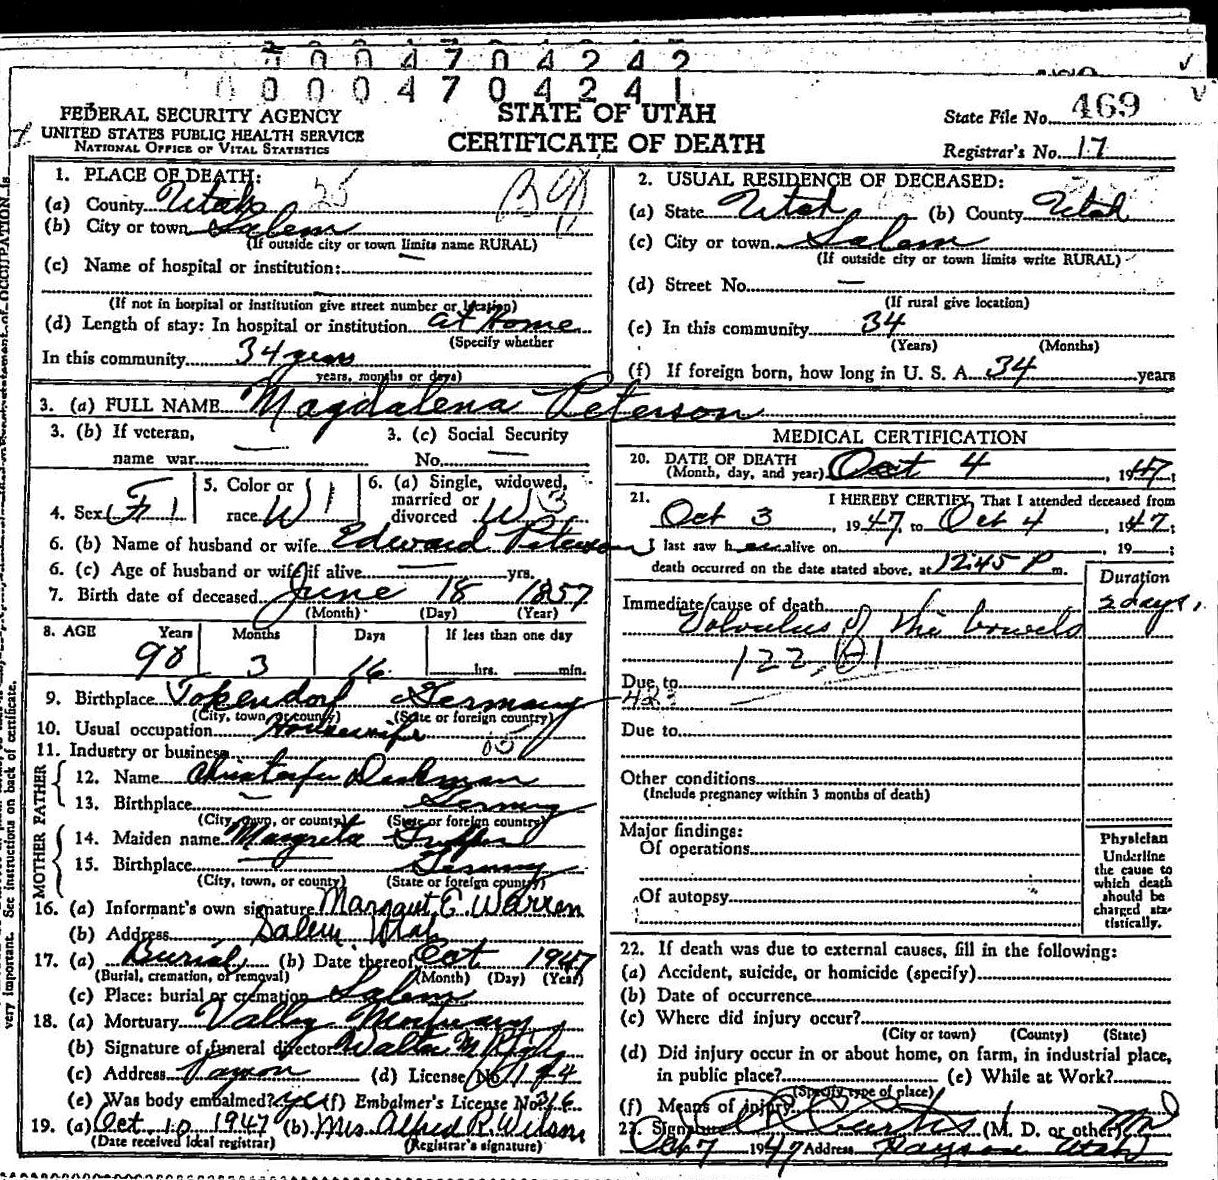 0 0 0 4 7 0 4 2 4 2
0 0 0 0 4 7 0 4 2 4 1
FEDERAL SECURITY AGENCY
UNITED STATES PUBLIC HEALTH SERVICE
NATIONAL OFFICE OF VITAL STATISTICS
STATE OF UTAH
CERTIFICATE OF DEATH
State File No. 469
Registrar's No. 17
1. PLACE OF DEATH:
(a) County Utah 25
(b) City or town Salem
(If outside city or town limits name RURAL)
(c) Name of hospital or institution:
(If not in hospital or institution give street number or location)
(d) Length of stay: In hospital or institution at Home
(Specify whether
In this community 34 years
years, months or days)
2. USUAL RESIDENCE OF DECEASED:
(a) State Utah (b) County Utah
(c) City or town Salem
(If outside city or town limits write RURAL)
(d) Street No. —
(If rural give location)
(e) In this community 34
(Years) (Months)
(f) If foreign born, how long in U. S. A. 34 years
3. (a) FULL NAME Magdalena Peterson
3. (b) If veteran,
name war —
3. (c) Social Security
No. —
4. Sex F 1
5. Color or
race W 1
6. (a) Single, widowed,
married or
divorced W 3
6. (b) Name of husband or wife Edward Peterson
6. (c) Age of husband or wife if alive — yrs.
7. Birth date of deceased June 18 1857
(Month) (Day) (Year)
8. AGE Years Months Days If less than one day
90 3 16 hrs. min.
9. Birthplace Germany
(City, town or county) (State or foreign country)
10. Usual occupation Housewife
11. Industry or business
FATHER
12. Name
13. Birthplace — Germany
(City, town, or county) (State or foreign country)
MOTHER
14. Maiden name Margreta
15. Birthplace — Germany
(City, town, or county) (State or foreign country)
16. (a) Informant's own signature Margaret E Warren
(b) Address Salem, Utah
17. (a) Burial (b) Date thereof Oct 1947
(Burial, cremation, or removal) (Month) (Day) (Year)
(c) Place: burial or cremation Salem
18. (a) Mortuary Valley Mortuary
(b) Signature of funeral director Walter M
(c) Address Payson (d) License No.
(e) Was body embalmed? yes (f) Embalmer's License No. 316
19. (a) Oct 10 1947 (b) Mrs. Alfred R. Wilson
(Date received local registrar) (Registrar's signature)
MEDICAL CERTIFICATION
20. DATE OF DEATH
(Month, day, and year) Oct 4, 1947
21. I HEREBY CERTIFY, That I attended deceased from
Oct 3, 1947, to Oct 4, 1947;
I last saw her alive on , 19 ;
death occurred on the date stated above, at 12:45 P m.
Duration
Immediate cause of death 2 days,
Volvulus of the bowels
122
Due to
Due to
Other conditions
(Include pregnancy within 3 months of death)
Major findings:
Of operations
Of autopsy
Physician
Underline
the cause to
which death
should be
charged sta-
tistically.
22. If death was due to external causes, fill in the following:
(a) Accident, suicide, or homicide (specify)
(b) Date of occurrence
(c) Where did injury occur?
(City or town) (County) (State)
(d) Did injury occur in or about home, on farm, in industrial place,
in public place? (e) While at Work?
(Specify type of place)
(f) Means of injury
23. Signature Curtis (M. D. or other) MD
Oct 7 1947 Address Payson Utah
very important. See instructions on back of certificate.